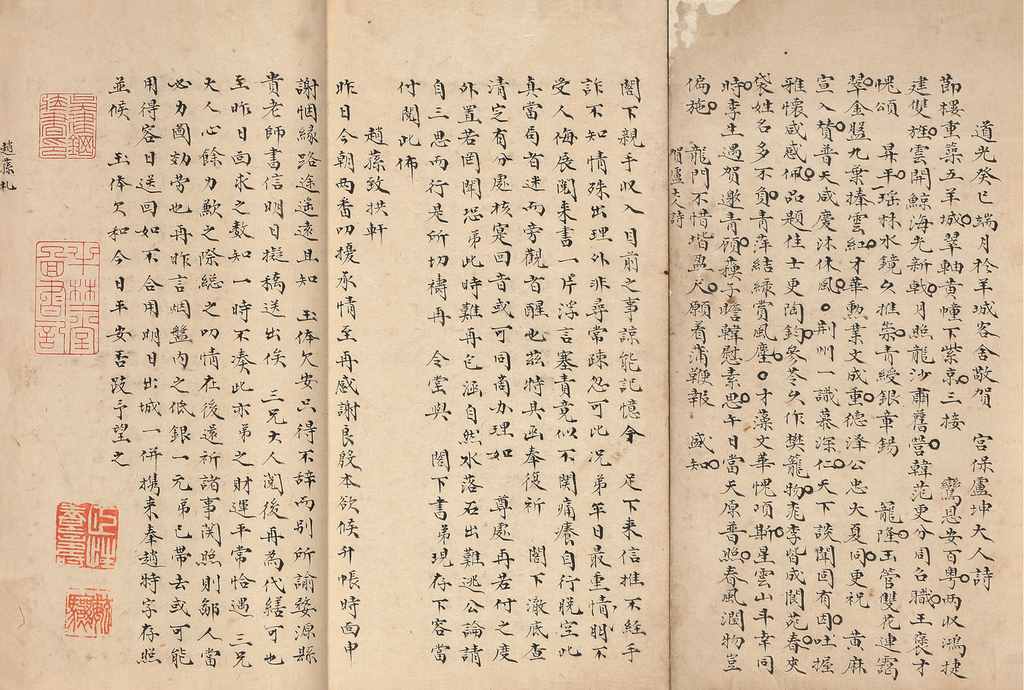 道光癸巳端月於羊城客舍敬賀 宮保盧坤大人詩
節樓重蒞五羊城翠軸黃幢下紫京三接 鸞恩安百粵兩收鴻捷
建雙旌雲開鯨海光新戟月照龍沙肅舊營韓范更分同召職王褒才
愧頌 昇平瑤林水鏡久推崇青綬銀章錫 龍隆玉管雙花連露
翠金盤九葉捧雲紅才華勳業文成重德澤公忠大夏同更祝 黃麻
宣入贊普天咸慶沐休風荊州一識慕深仁天下談聞固有因吐握
雅懷感感佩品題佳士更陶鈞參苓久作樊籠物桃李皆成閬苑春夾
袋姓名多不負青萍結綠賞風塵才藻文華愧項斯星雲山斗幸同
時李生遇賀邀青顧 子瞻韓慰素思午日當天原普照春風潤物豈
偏施 龍門不惜堦盈尺願著蒲鞭報 盛知
賀盧大人詩
閣下親手收入目前之事諒能記憶今 足下來信推不經手
詐不知情殊出理外非尋常疎忽可比況 弟年日最重情明不
受人侮辰閱來書一片浮言塞責竟似不關痛癢自行脫空此
真當局者迷而旁觀者醒也茲特具函奉復祈 閣下澈底查
清定有分處核寔回音或可同商办理如 尊處再若付之度
外置若罔聞恐弟此時難再包涵自然水落石出難逃公論請
自三思而行是所切禱再 令堂與 閣下書弟現存下容當
付閱此佈
趙蓀致拱軒
昨日今朝兩番叨擾承情至再感謝良殷本欲候升帳時面申
謝悃緣路途遙遠且知 玉体欠安只得不辞而别所諭婺源縣
貴老師書信明日擬稿送出俟 三兄大人閱後再為代繕可也
至昨日面求之数知一時不湊此亦弟之財運平常恰遇 三兄
大人心餘力歉之際総之叨情在後遂祈諸事関照則鄙人當
心力圖効勞也再昨言烟盤内之低銀一元弟已帶去或可能
用得容日送回如不合用明日出城一併携来奉趙特字存照
並候 玉体欠和今日平安否跂予望之
趙蓀札